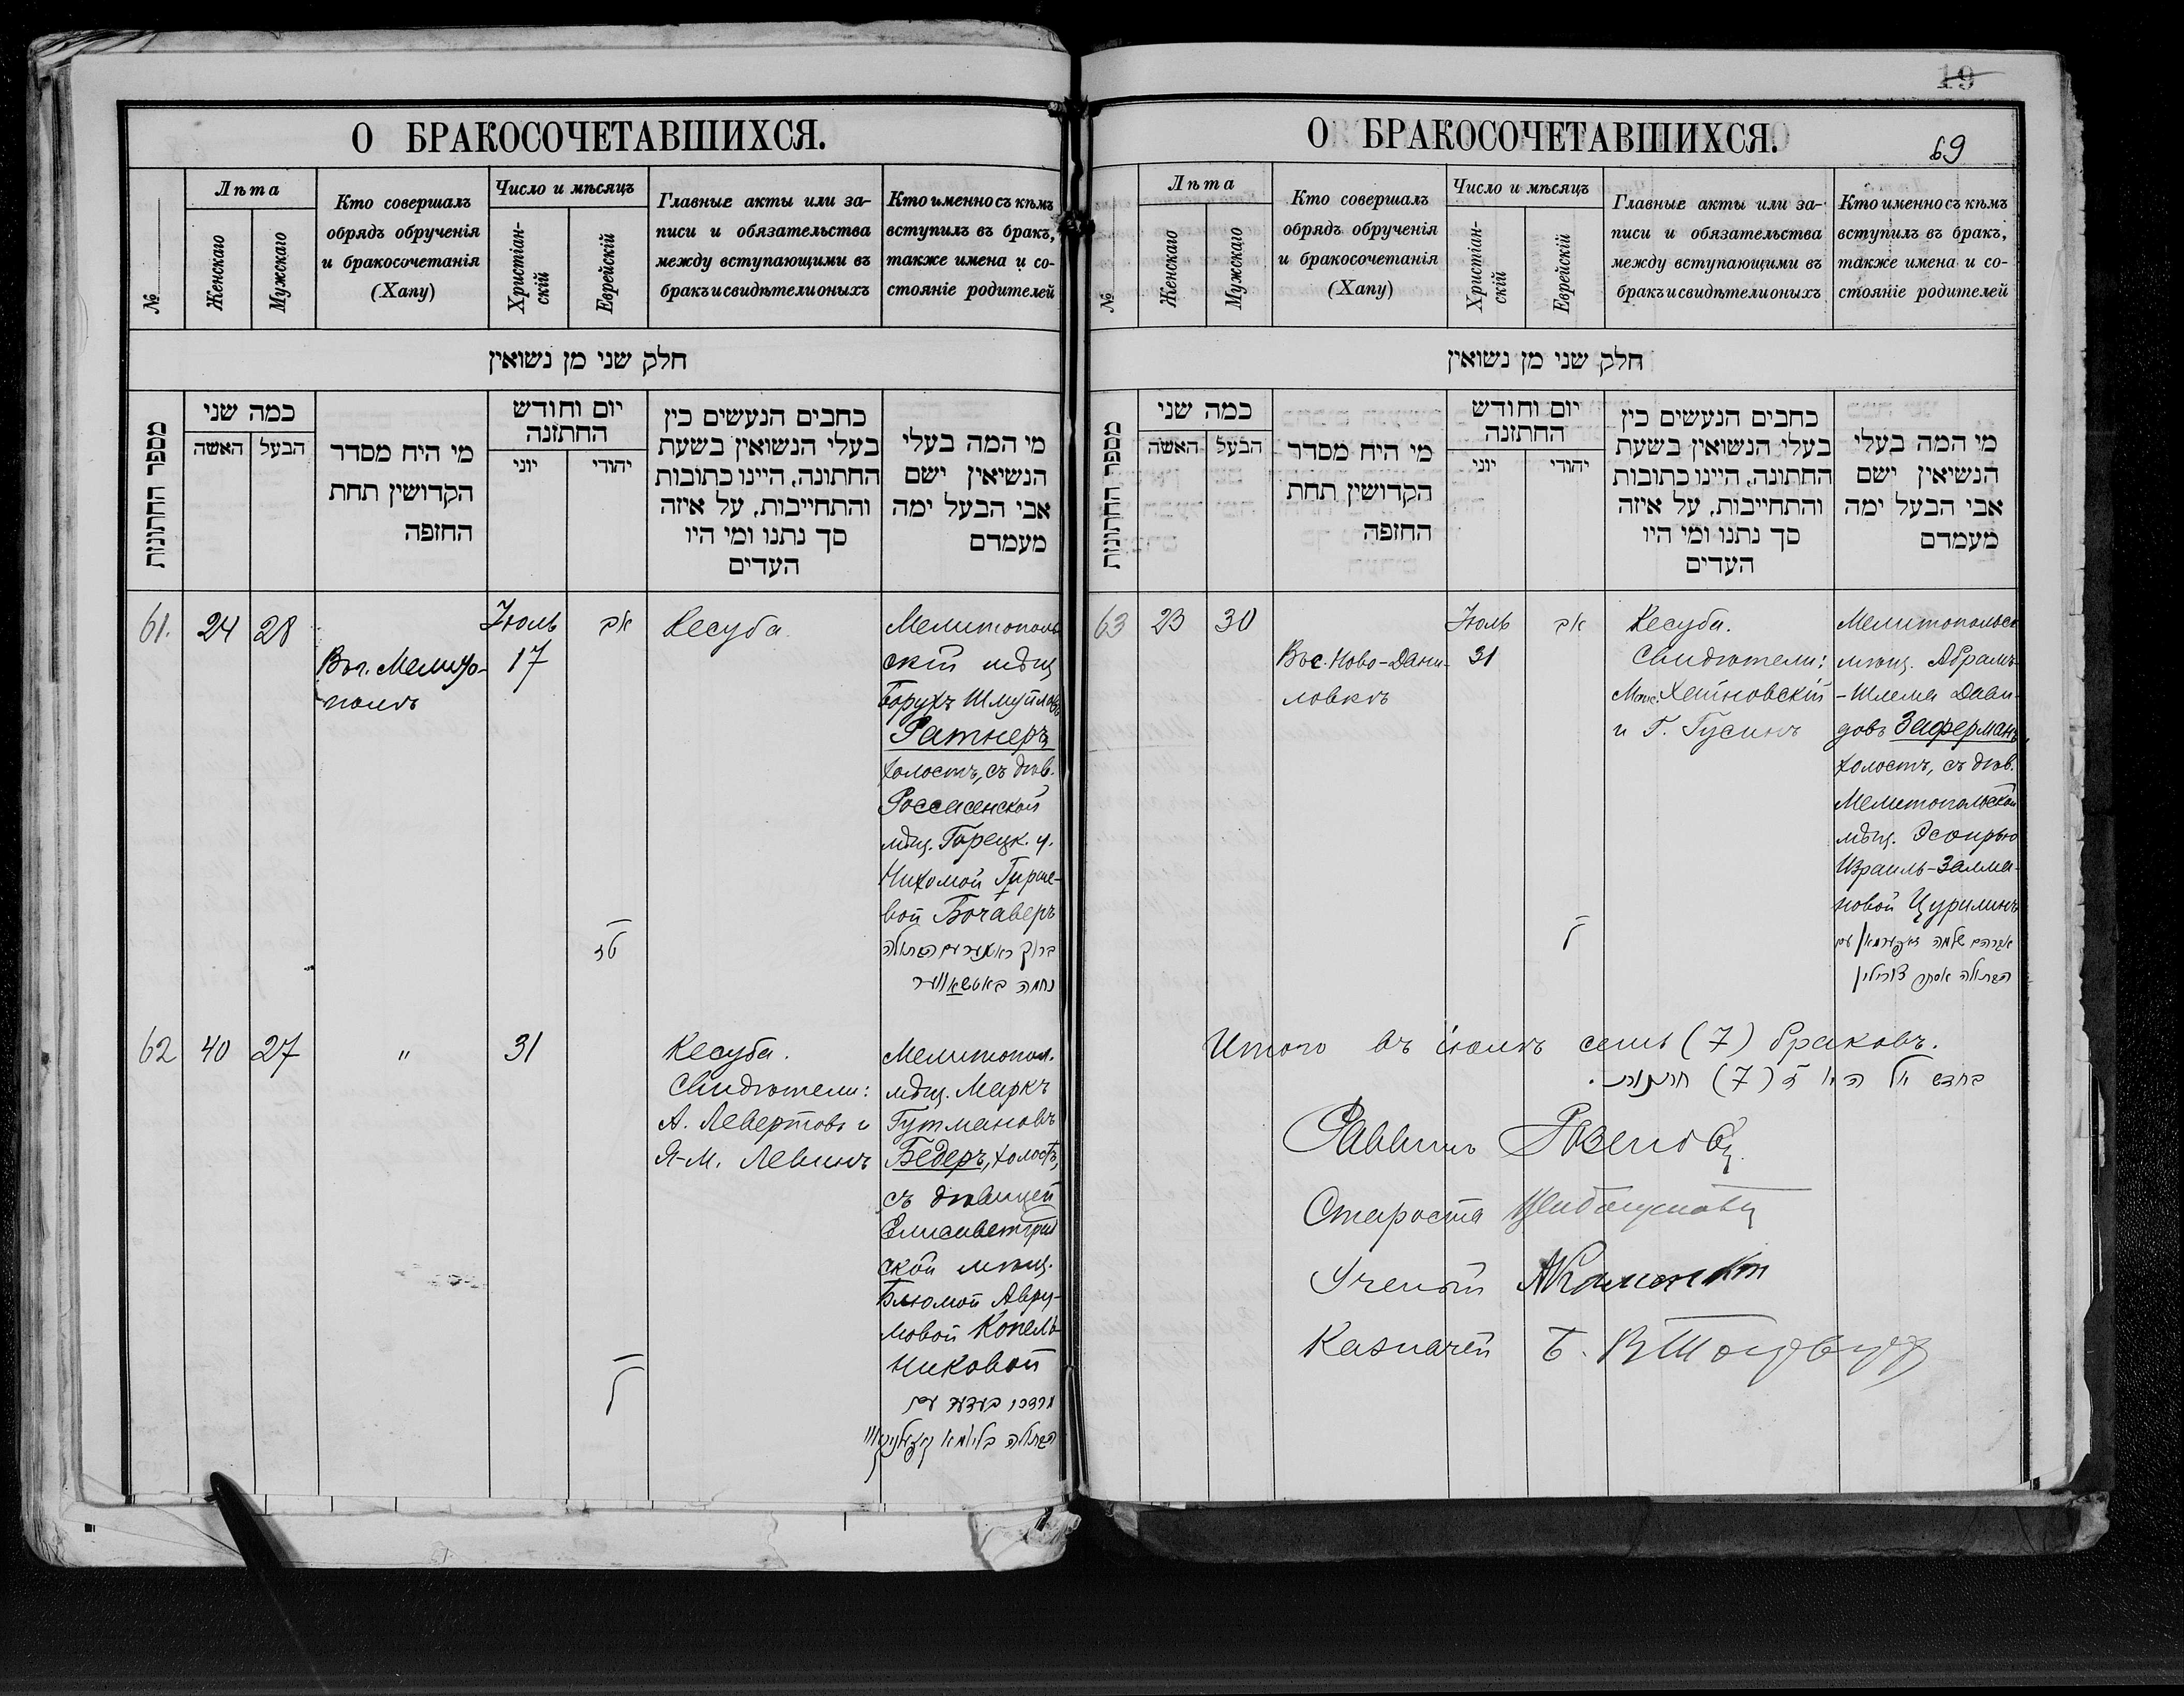 О БРАКОСОЧЕТАВШИХСЯ.
№
Лѣта
Женскаго
Мужскаго
Кто совершалъ
обрядъ обрученія
и бракосочетанія
(Хапу)
Число и мѣсяцъ
Христіан-
скій
Еврейскій
Главные акты или за-
писи и обязательства
между вступающими въ
бракъ и свидѣтели оныхъ
Кто именно съ кѣмъ
вступилъ въ бракъ,
также имена и со-
стояніе родителей
חלק שני מן נשואין
מספר החתונות
כמה שני
האשה
הבעל
מי היח מסדר
הקדושין תחת
החופה
יום וחודש
החתונה
יוני
יהודי
כחבים הנעשים כין
בעלי הנשואין בשעת
החתונה, היינו כתובות
והתחייבות, על איזה
סך נתנו ומי היו
העדים
מי המה בעלי
הנשיאין ישם
אבי הבעל ימה
מעמדם
61.
24
28
Въ г. Мелито-
полѣ
Іюль
17
אב
טז
Кесуба.
Мелитополь
скій мѣщ.
Борухъ Шмуйловъ
Ратнеръ
холостъ, съ дѣв.
Россасенской
мѣщ. Горецк. у.
Нихомой Гирше-
вой Бочаверъ
ברוך ראטנער עם הבתולה
נחמה
62
40
27
"
31
ר
Кесуба.
Свидѣтели:
А. Левертовъ и
Я-М. Левинъ
Мелитопол.
мѣщ. Маркъ
Гутмановъ
Бедеръ, холостъ,
съ дѣвицей
Елисаветград
ской мѣщ.
Блюмой Авру-
мовой Копель
никовой
מרדכי בעדער עם
הבתולה בליומא
19
69
О БРАКОСОЧЕТАВШИХСЯ.
№
Лѣта
Женскаго
Мужскаго
Кто совершалъ
обрядъ обрученія
и бракосочетанія
(Хапу)
Число и мѣсяцъ
Христіан-
скій
Еврейскій
Главные акты или за-
писи и обязательства
между вступающими въ
бракъ и свидѣтели оныхъ
Кто именно съ кѣмъ
вступилъ въ бракъ,
также имена и со-
стояніе родителей
חלק שני מן נשואין
מספר החתונות
כמה שני
האשה
הבעל
מי היח מסדר
הקדושין תחת
החופה
יום וחודש
החתונה
יוני
יהודי
כחבים הנעשים כין
בעלי הנשואין בשעת
החתונה, היינו כתובות
והתחייבות, על איזה
סך נתנו ומי היו
העדים
מי המה בעלי
הנשיאין ישם
אבי הבעל ימה
מעמדם
63
23
30
Въ с. Ново-Дани-
ловкѣ
Іюль
31
אב
ר
Кесуба.
Свидѣтели:
Хайновскій
и Г. Гусинъ
Мелитопольск
мѣщ. Абрамъ
-Шлема Дави-
довъ Заферманъ,
холостъ, съ дѣв.
Мелитопольской
мѣщ. Эсѳирью
Израиль-Залма-
новой Цурилинъ
אברהם שלמה זאפערמאן עם
הבתולה אסתר צורילין
Итого въ іюлѣ семь (7) браковъ.
בחדש יולי היו ז (7) חתונות.
Раввинъ
Староста
Ученый
Казначей Б.